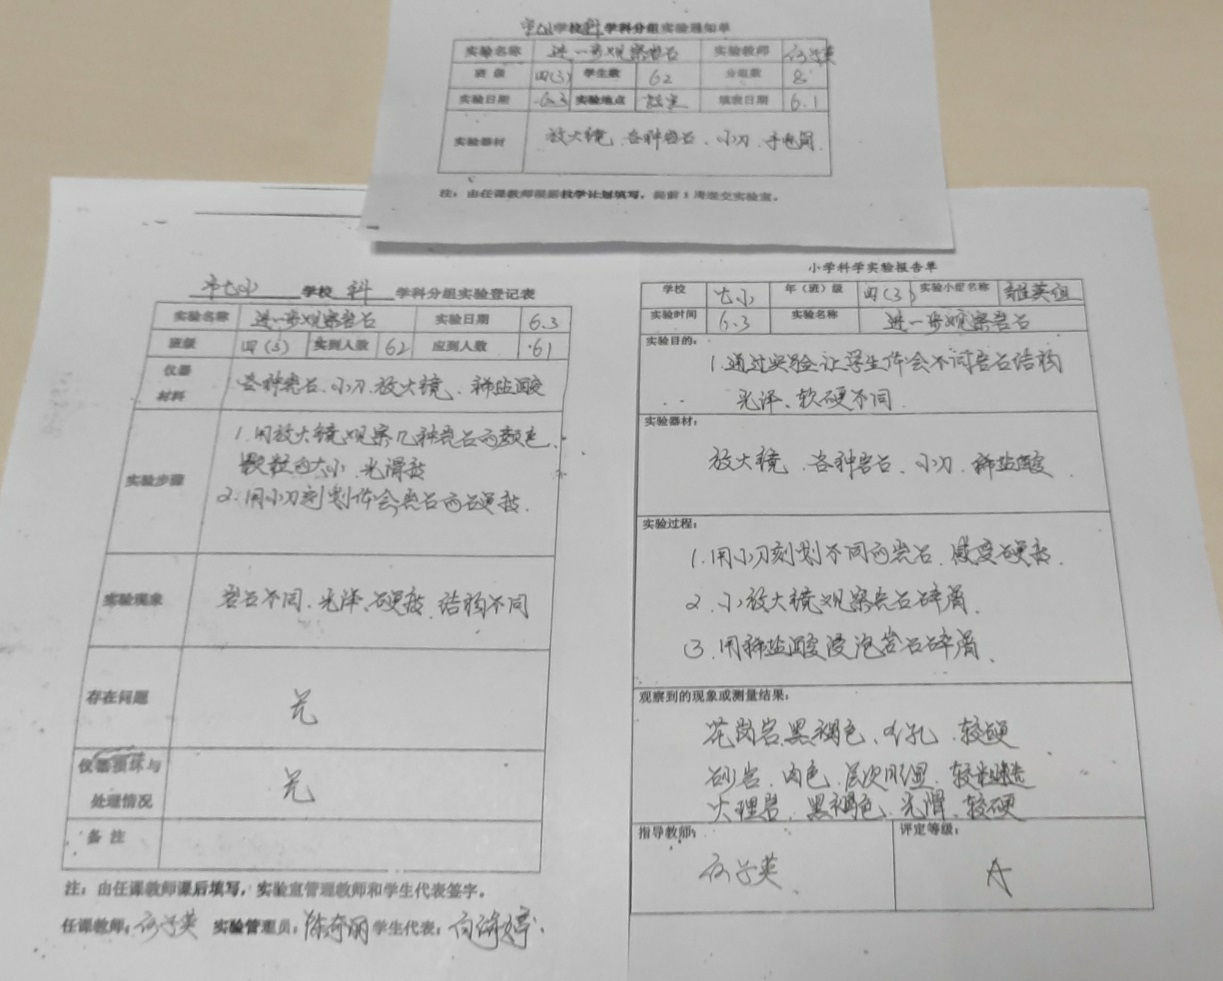 学校 科 学科分组实验通知单
实验名称 进一步观察岩石 实验教师
班级 四(3) 学生数 62 分组数 8
实验日期 6.3 实验地点 填表日期 6.1
实验器材 放大镜、各种岩石、小刀、手电筒
注：由任课教师根据教学计划填写，提前1周递交实验室。
市七小 学校 科 学科分组实验登记表
实验名称 进一步观察岩石 实验日期 6.3
班级 四(3) 实到人数 62 应到人数 61
仪器材料 各种岩石、小刀、放大镜、稀盐酸
实验步骤 1.用放大镜观察几种岩石的颜色、
颗粒的大小、光滑度
2.用小刀刻划体会岩石的硬度.
实验现象 岩石不同、光泽、硬度、结构不同
存在问题 无
仪器损坏与处理情况 无
备注
注：由任课教师课后填写，实验室管理教师和学生代表签字。
任课教师： 实验管理员： 学生代表：
小学科学实验报告单
学校 七小 年（班）级 四(3) 实验小组名称 雄英组
实验时间 6.3 实验名称 进一步观察岩石
实验目的：
1.通过实验让学生体会不同岩石结构
光泽、软硬不同.
实验器材：
放大镜、各种岩石、小刀、稀盐酸
实验过程：
1.用小刀刻划不同的岩石、感受硬度.
2.小放大镜观察岩石碎屑、
3.用稀盐酸浸泡岩石碎屑、
观察到的现象或测量结果：
花岗岩、黑褐色、气孔、较硬
砂岩、肉色、层次明显、较粗糙
大理岩、黑褐色、光滑、较硬
指导教师： 评定等级：
A